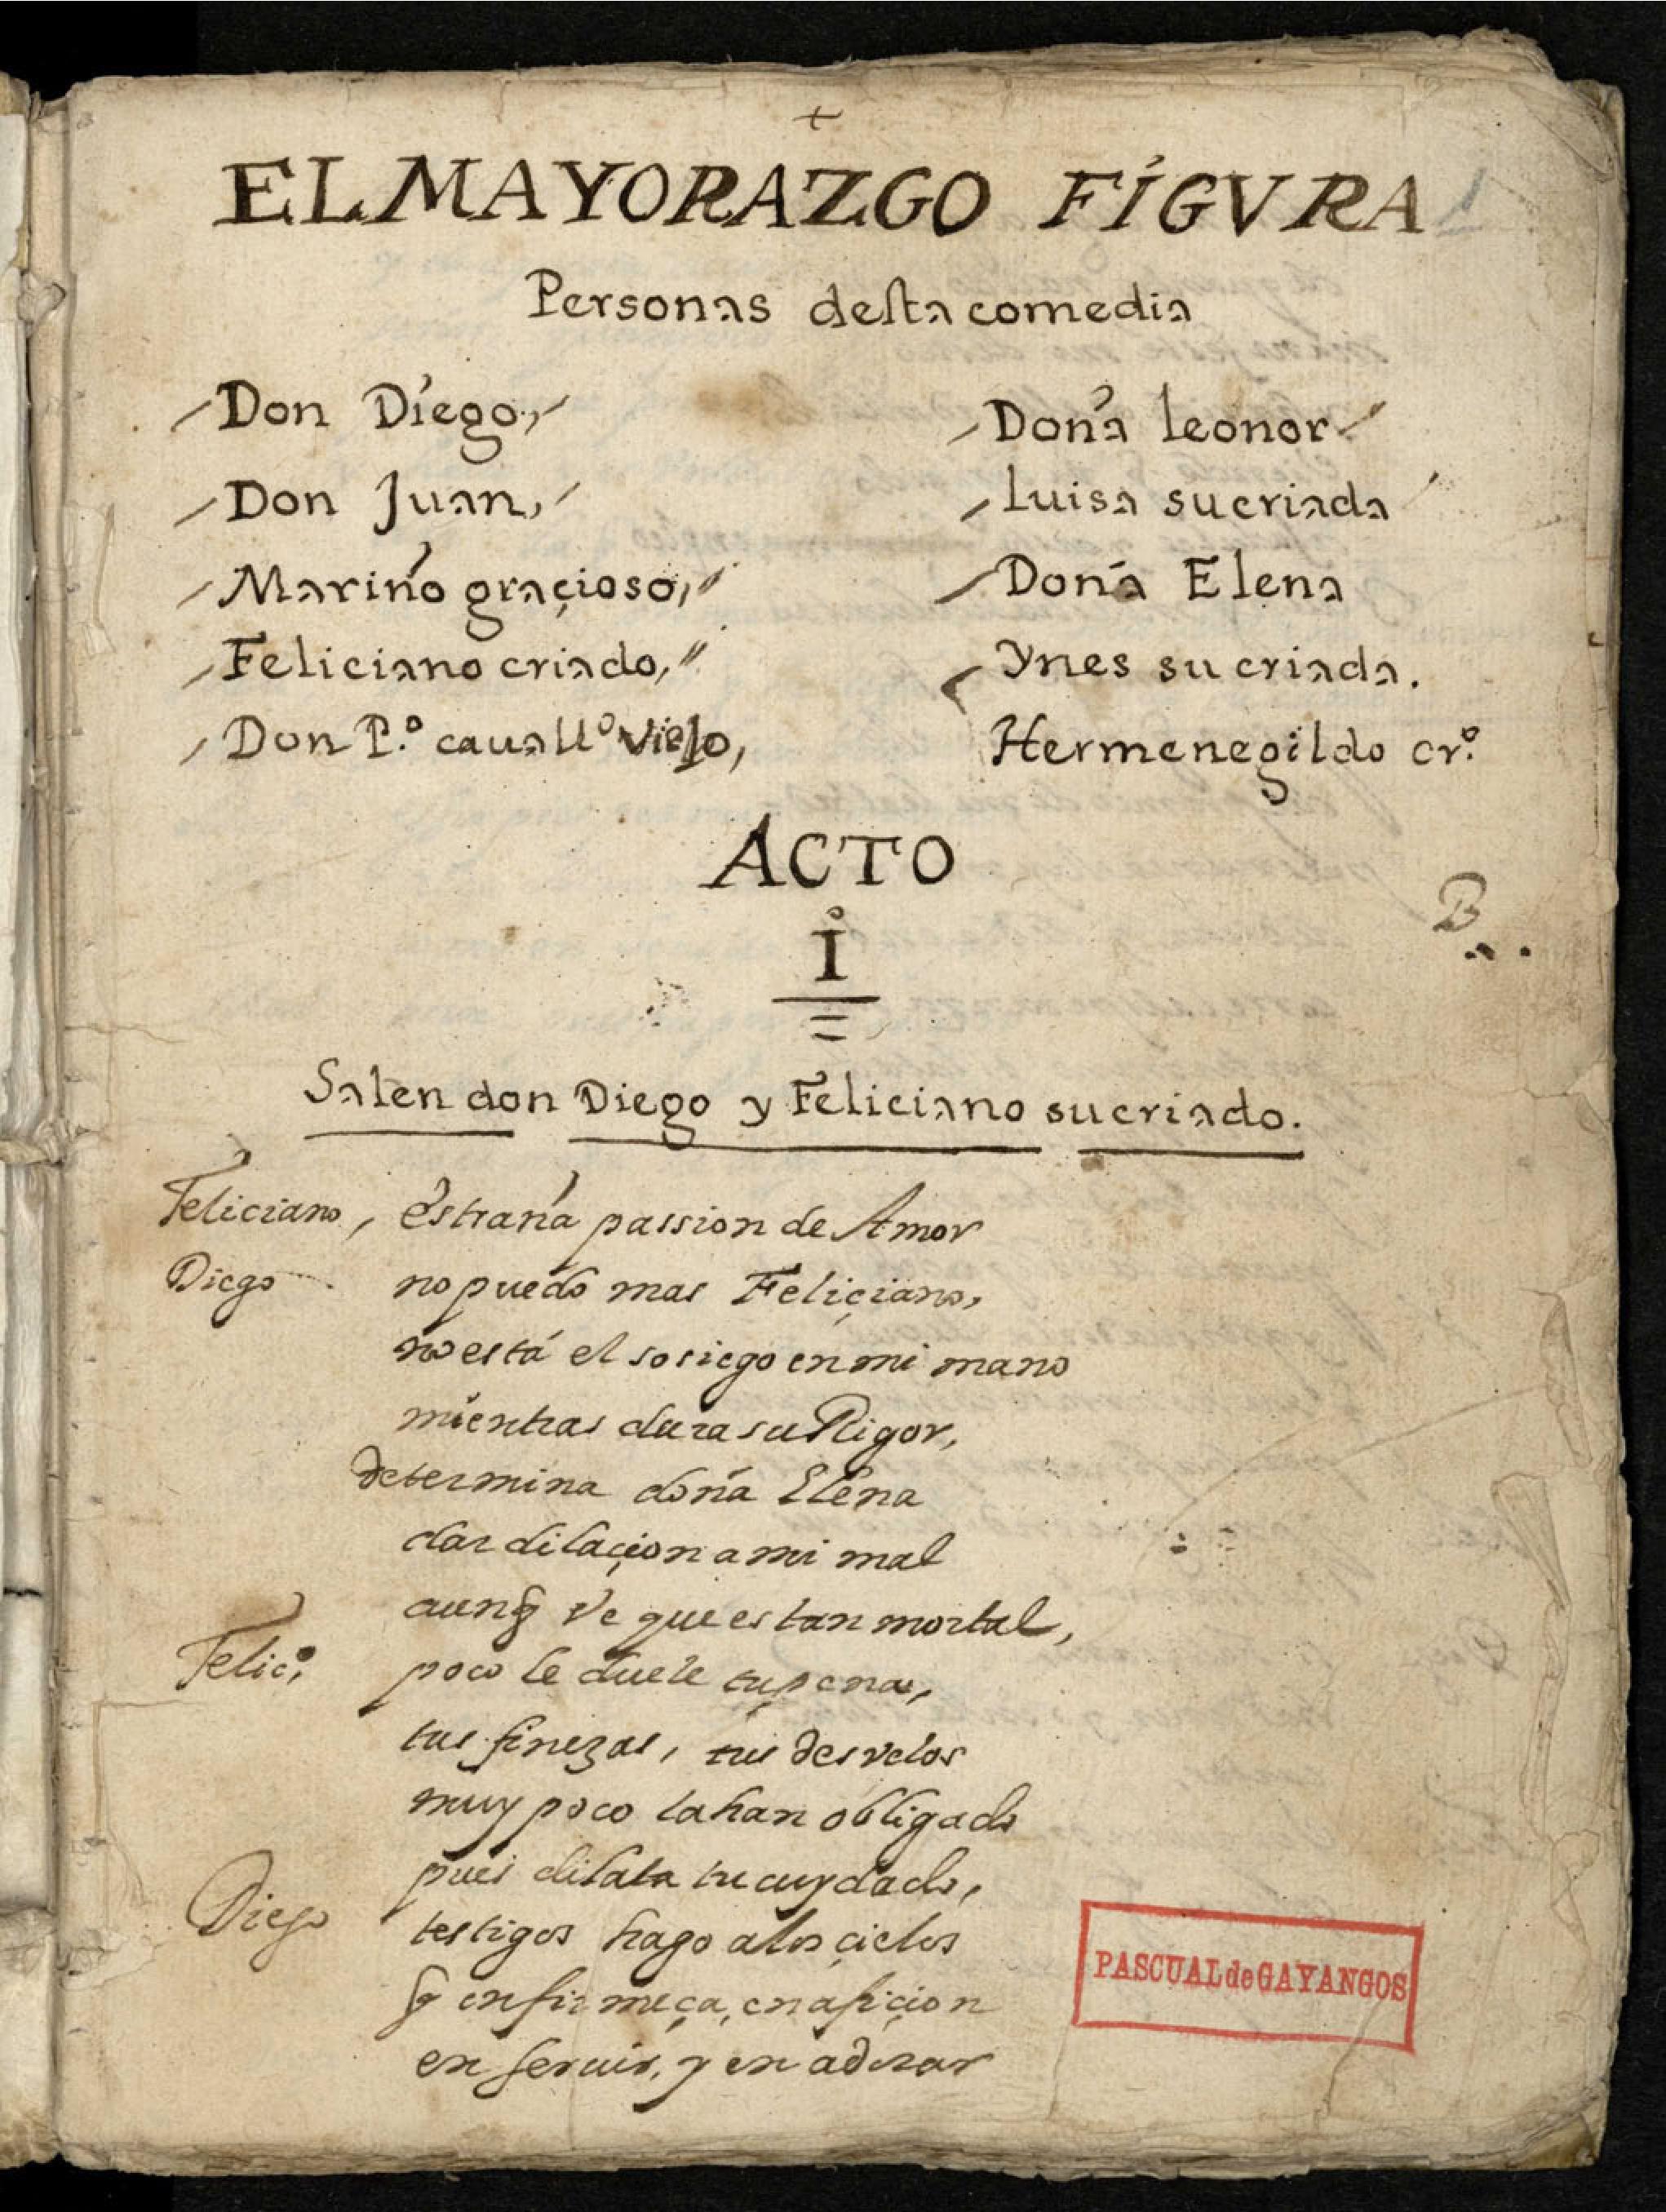 +
EL MAYORAZGO FIGVRA
Personas desta comedia
Don Diego,
Don Juan,
Mariño graçioso,
Feliciano criado,
Don P.º cauallº viejo,
Doña leonor
Luisa su criada
Doña Elena
Ynes su criada.
Hermenegildo cr.º
ACTO
I
Salen don Diego y Feliciano su criado.
Feliciano, estraña passion de Amor
Diego no puedo mas Feliçiano,
no está el sosiego en mi mano
mientras dura su Rigor,
determina doña Elena
dar dilaçion a mi mal
aunq ve que es tan mortal,
Felic.º poco le duele tu pena,
tus finezas, tus desvelos
muy poco la han obligado
pues dilata tu cuydado,
Diego testigos hago a los çielos
q en firmeça, en afiçion
en seruir, y en adorar
B
PASCUAL de GAYANGOS